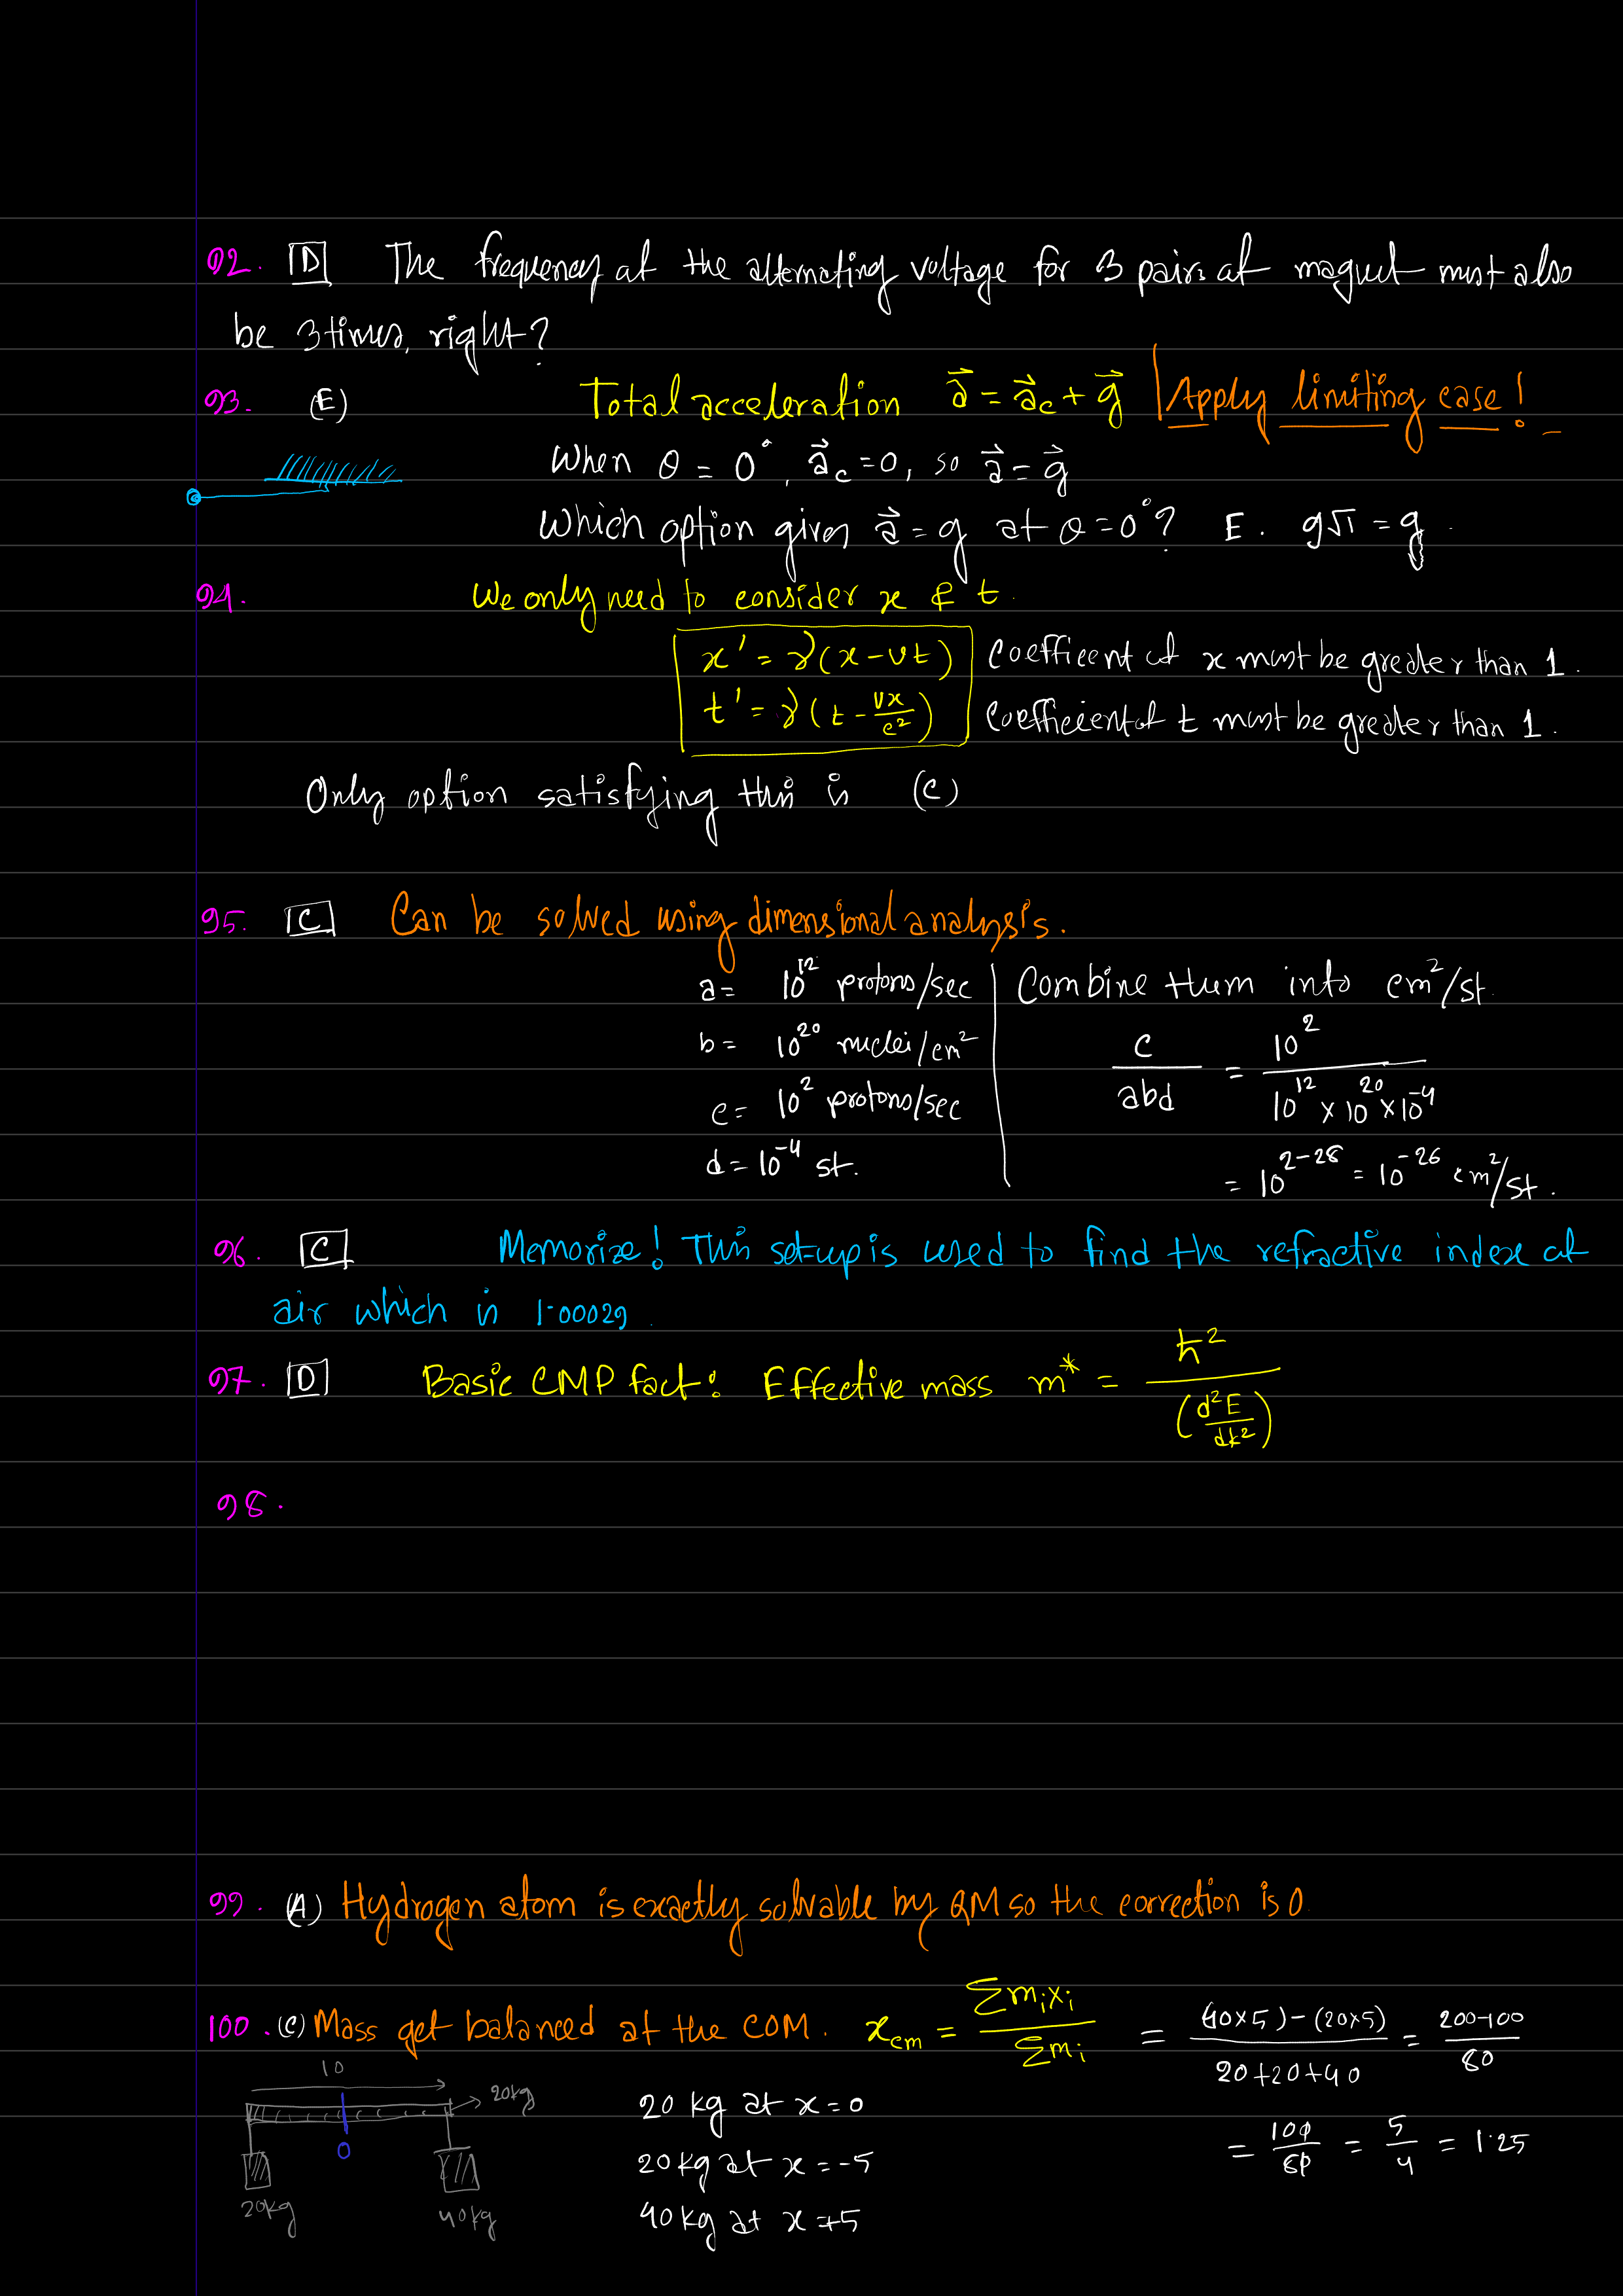 92. D The frequency of the alternating voltage for 3 pairs of magnet must also
be 3 times, right?
93. (E) Total acceleration a⃗ = a⃗c + g⃗ | Apply limiting case!
When θ = 0°, a⃗c = 0, so a⃗ = g⃗
Which option gives a⃗ = g at θ = 0°? E. g√1 = g.
94. We only need to consider x & t.
x' = γ(x - vt) Coefficent of x must be greater than 1.
t' = γ(t - vx/c²) Coefficient of t must be greater than 1.
Only option satisfying this is (C)
95. C Can be solved using dimensional analysis.
a = 10¹² protons/sec | Combine them into cm²/st.
b = 10²⁰ nuclei/cm²
c/abd = 10²/(10¹² × 10²⁰ × 10⁻⁴)
c = 10² protons/sec
d = 10⁻⁴ st.
= 10²⁻²⁸ = 10⁻²⁶ cm²/st.
96. C Memorize! This set-up is used to find the refractive index of
air which is 1.00029.
97. D Basic CMP fact: Effective mass m* = ħ²/(d²E/dk²)
98.
99. (A) Hydrogen atom is exactly solvable by QM so the correction is 0.
100. (C) Mass get balanced at the COM. xcm = Σmixi/Σmi = (40×5)-(20×5)/20+20+40 = 200-100/80
10
20kg
20 kg at x = 0
0
= 100/80 = 5/4 = 1.25
20kg at x = -5
20kg
40kg
40kg at x = +5